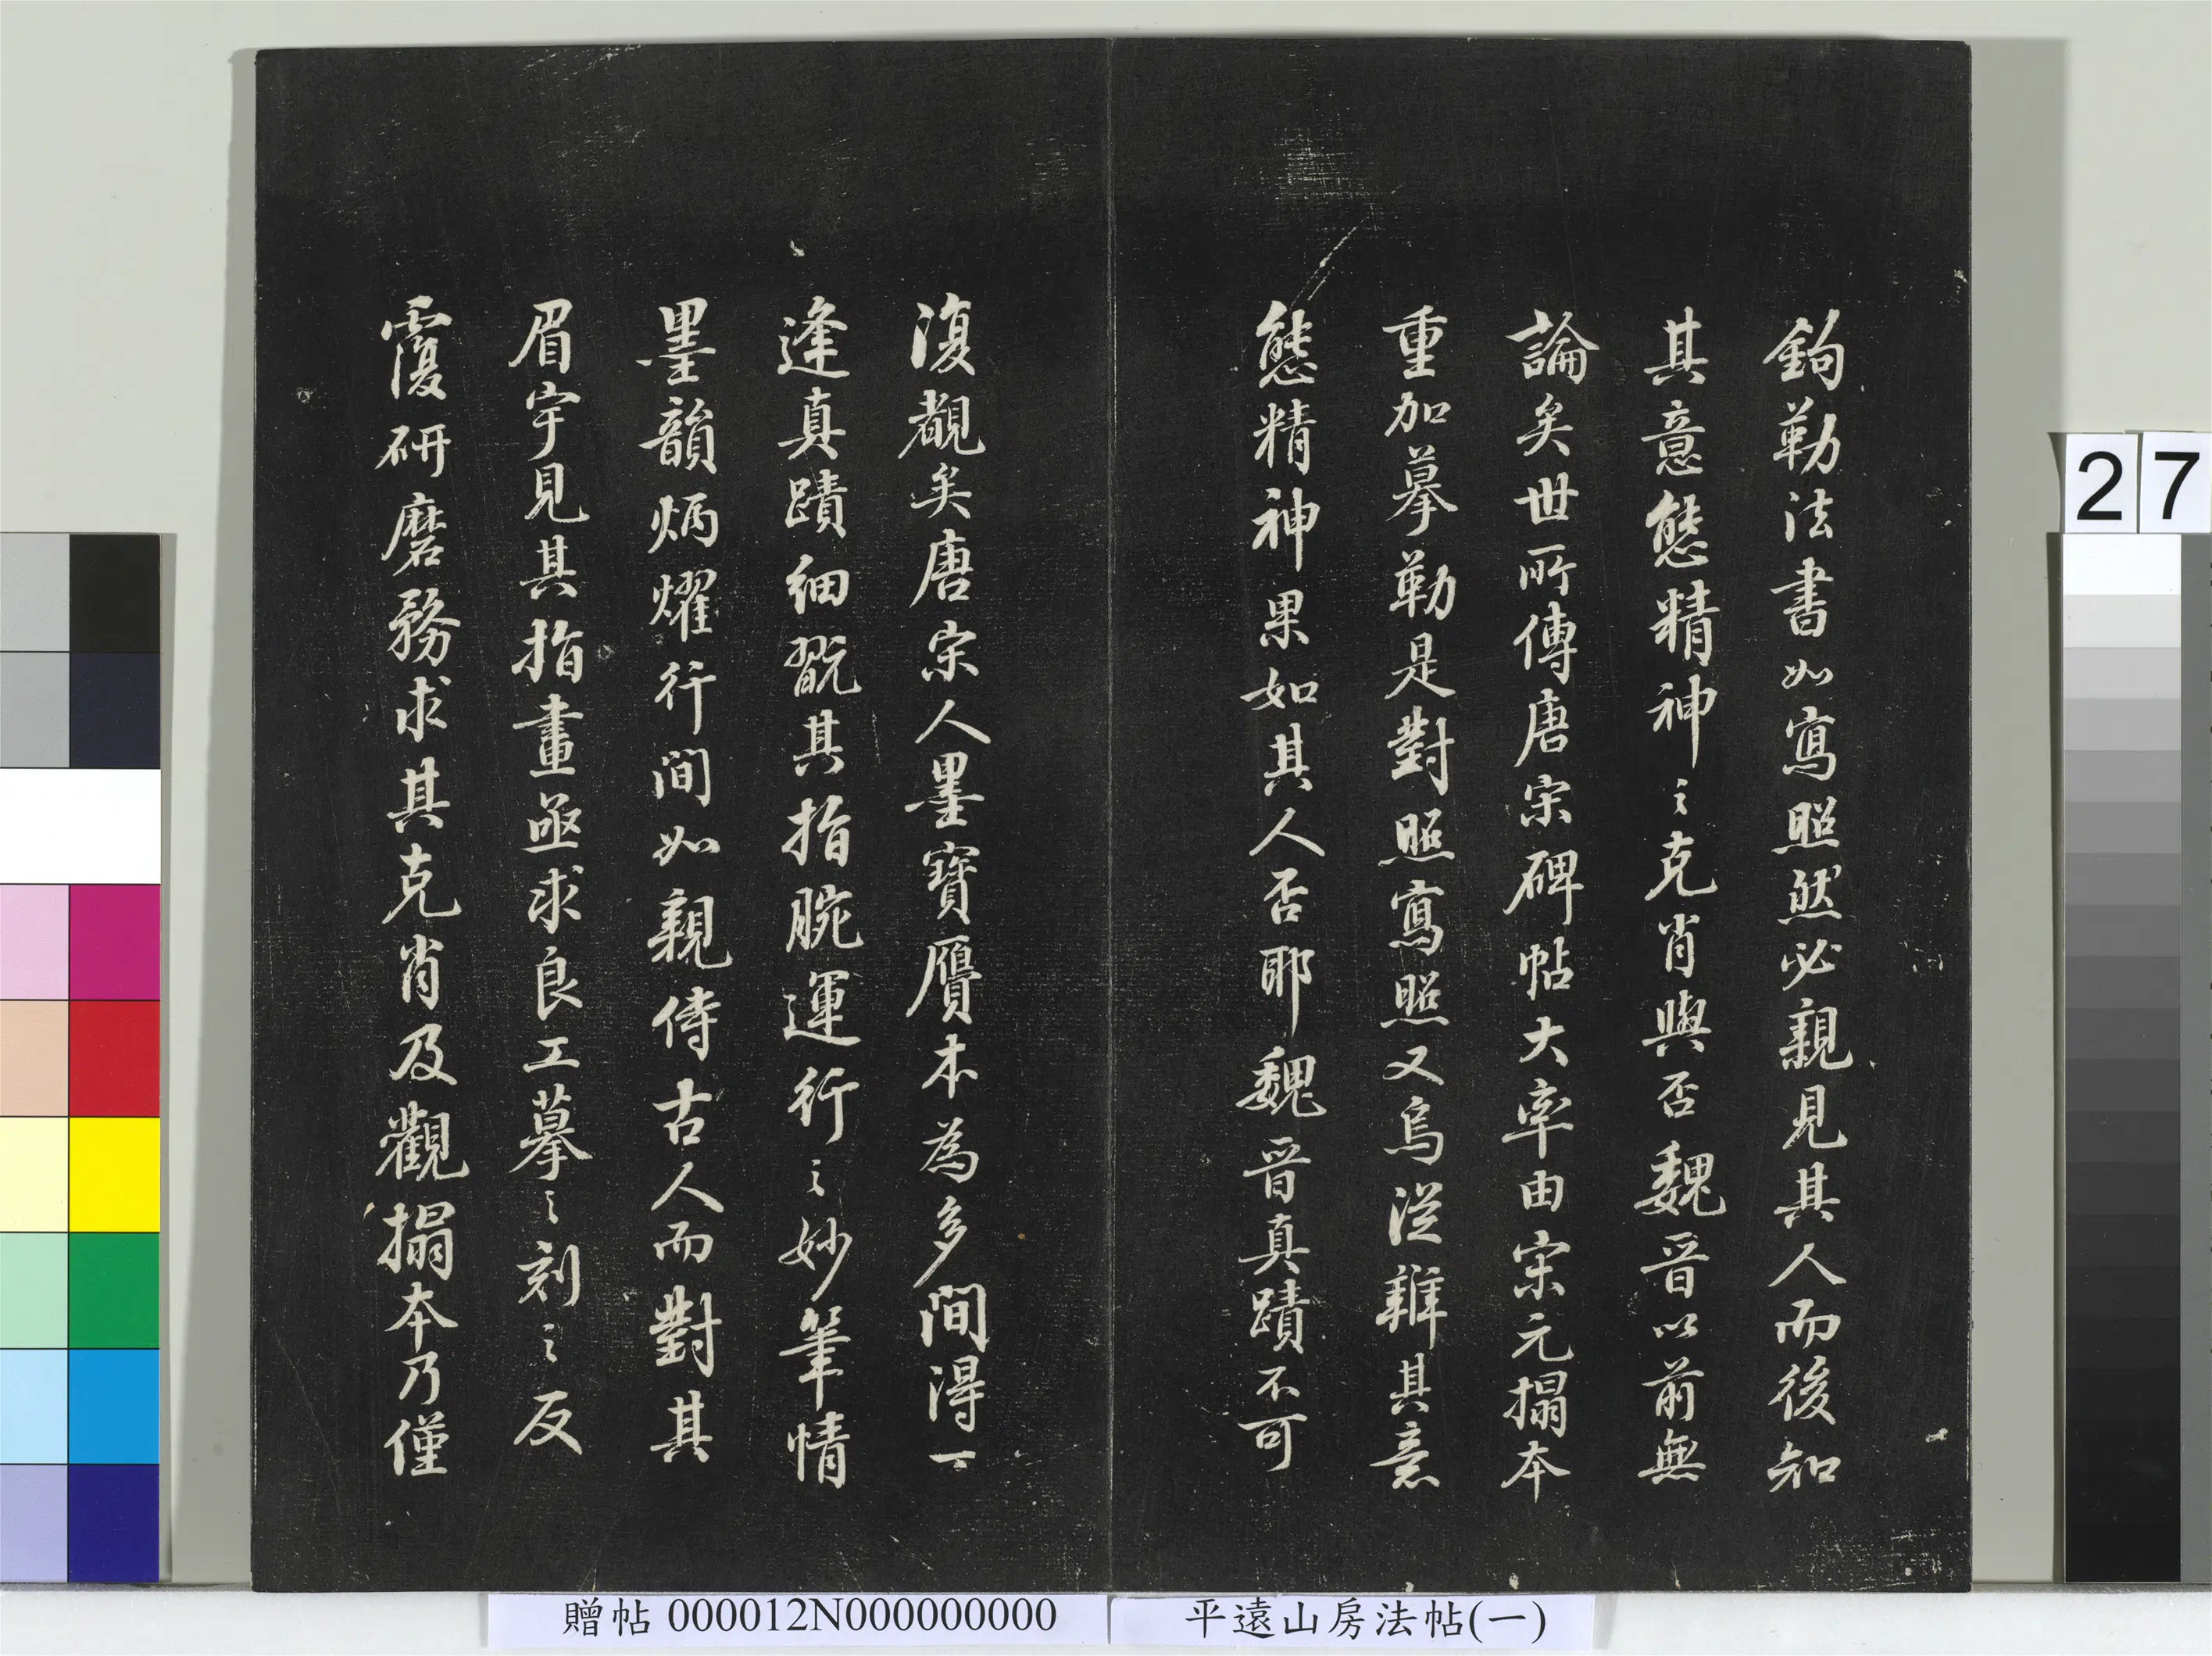 鉤勒法書如寫照然必親見其人而後知
其意態精神之克肖與否魏晉以前無
論矣世所傳唐宋碑帖大率由宋元搨本
重加摹勒是對照寫照又烏從辨其意
態精神果如其人否耶魏晉真蹟不可
復覩矣唐宋人墨寶贗本為多間得一
逢真蹟細翫其指腕運行之妙筆情
墨韻炳燿行間如親侍古人而對其
眉宇見其指畫亟求良工摹之刻之反
覆研磨務求其克肖及觀搨本乃僅
27
贈帖 000012N000000000
平遠山房法帖(一)